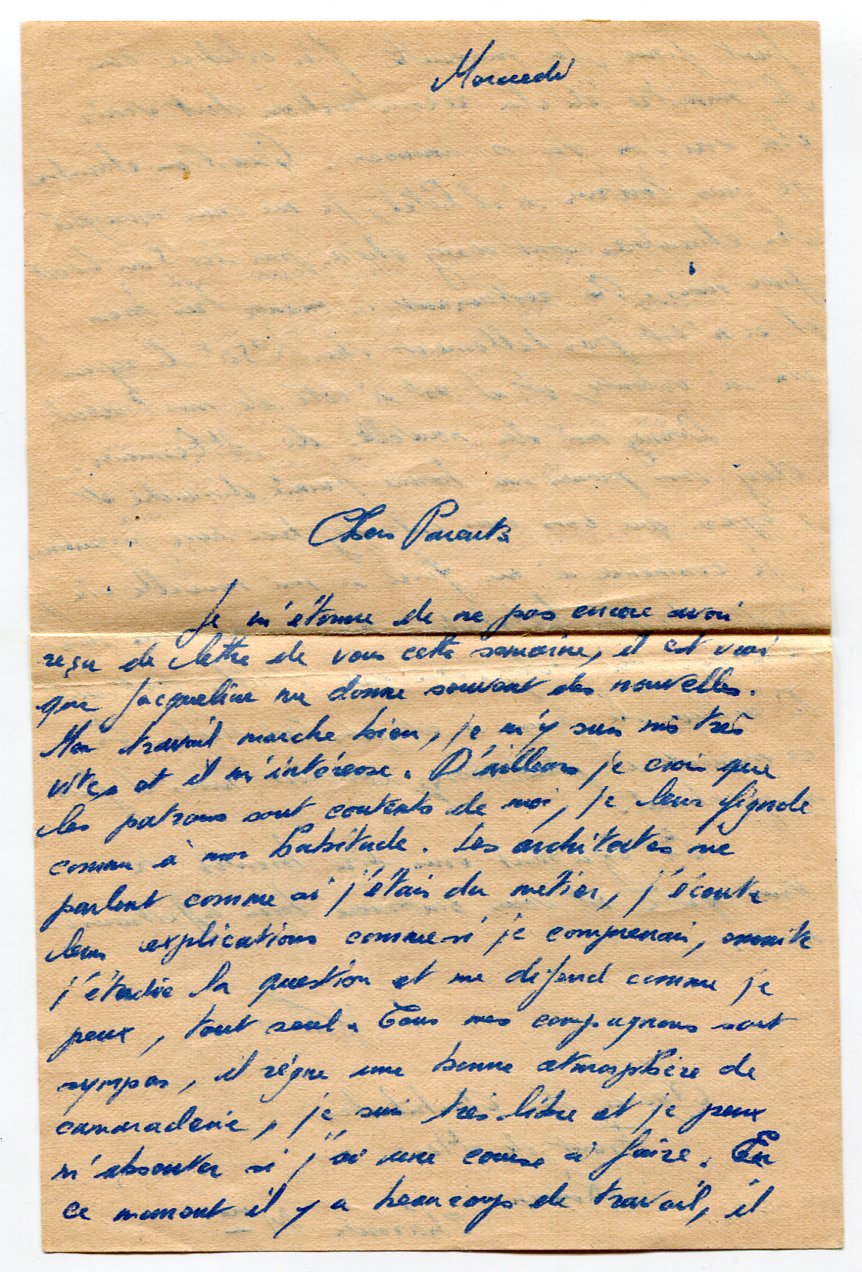 Mercredi
Chers Parents
Je m'étonne de ne pas encore avoir
reçu de lettre de vous cette semaine, il est vrai
que Jacqueline me donne souvent des nouvelles.
Mon travail marche bien, je m'y suis mis très
vite, et il m'intéresse. D'ailleurs je crois que
les patrons sont contents de moi, je leur signole
comme à mon habitude. Les architectes me
parlent comme si j'étais du métier, j'écoute
leurs explications comme si je comprenais, ensuite
j'étudie la question et me défend comme je
peux, tout seul. Tous mes compagnons sont
sympas, il règne une bonne atmosphère de
camaraderie, je suis très libre et je peux
m'absenter si j'ai une course à faire. En
ce moment il y a beaucoup de travail, il